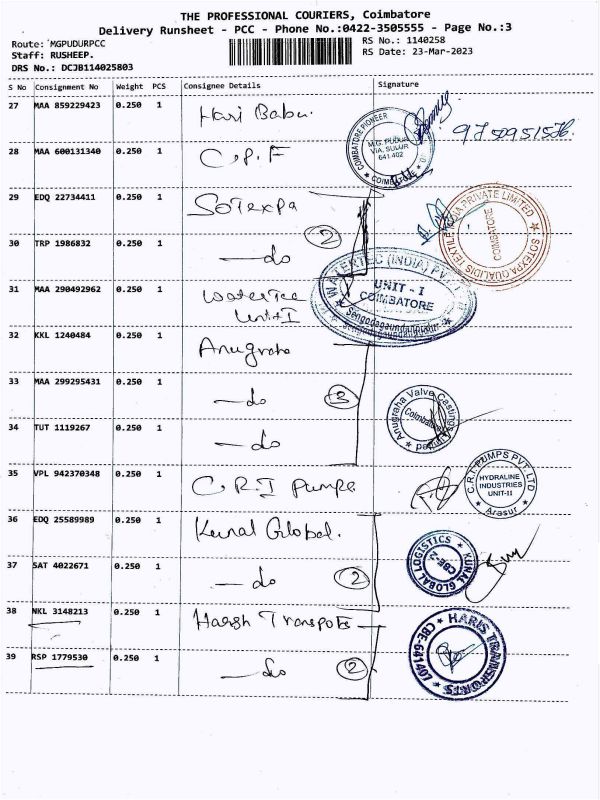 THE PROFESSIONAL COURIERS, Coimbatore
Delivery Runsheet - PCC - Phone No.:0422-3505555 - Page No.:3
Route: MGPUDURPCC
RS No.: 1140258
Staff: RUSHEEP.
RS Date: 23-Mar-2023
DRS No.: DCJB114025803
S No Consignment No Weight PCS Consignee Details Signature
27 MAA 859229423 0.250 1 Hari Babu.
COIMBATORE PIONEER
M.G. PUDUR
VIA. SULUR
641 402
COIMBATORE
28 MAA 600131340 0.250 1 C.P.F
29 EDQ 22734411 0.250 1 Sotexpa
SOTEXPA QUALIDIS TEXTILE INDIA PRIVATE LIMITED
COIMBATORE
30 TRP 1986832 0.250 1 — do 2
31 MAA 290492962 0.250 1 Watertec
Unit I
WATERTEC (INDIA) PVT. LTD
UNIT - I
COIMBATORE
32 KKL 1240484 0.250 1 Anugraha
33 MAA 299295431 0.250 1 — do 3
Anugraha Valve Castings
Coimbatore
34 TUT 1119267 0.250 1 — do
35 VPL 942370348 0.250 1 C.R.I Pumps
C.R.I. PUMPS PVT. LTD
HYDRALINE
INDUSTRIES
UNIT-II
Arasur
36 EDQ 25589989 0.250 1 Kunal Global.
KUNAL GLOBAL LOGISTICS
37 SAT 4022671 0.250 1 — do 2
38 NKL 3148213 0.250 1 Harsh Transpots
HARIS TRANSPORTS
CBE-641407
39 RSP 1779530 0.250 1 — do 2